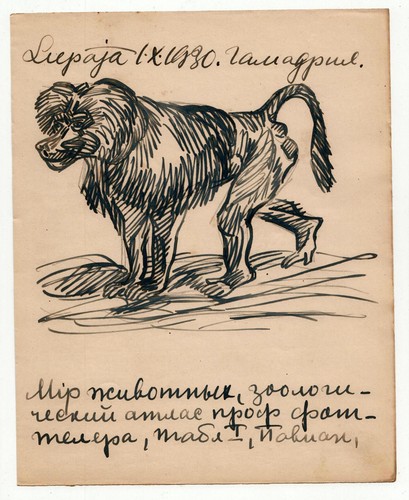 Liepāja 1·X 1930. Гамадрил.
Мір животных, зоологи-
ческий атлас проф фат-
телера, табл I, Павиан,